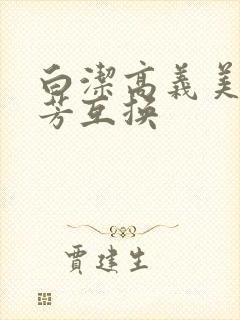 白潔高義美
芳互换
賈建生